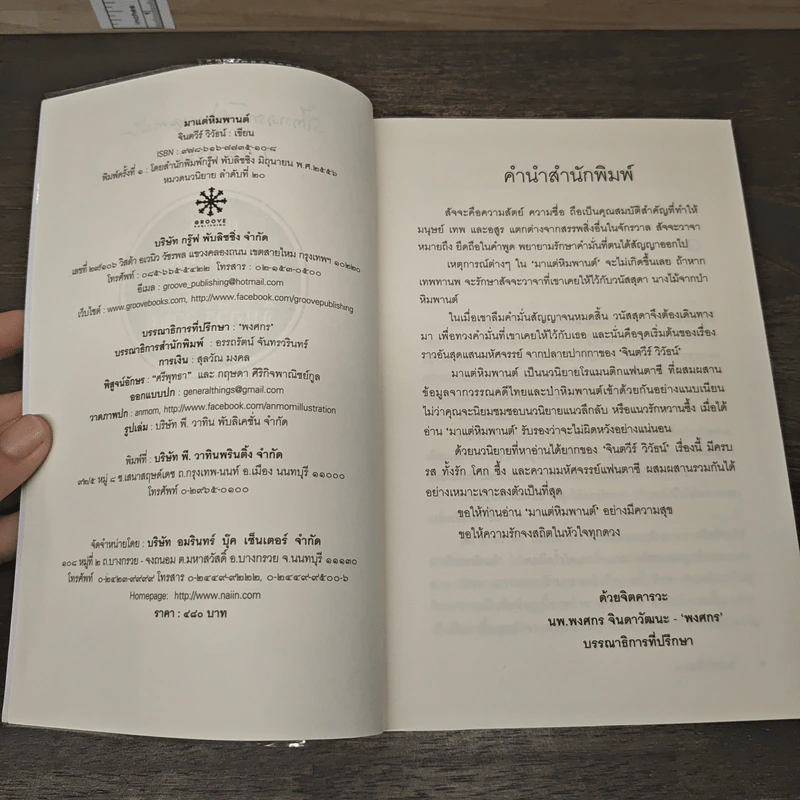 มาแต่หิมพานต์
จินตวีร์ วิวัธน์ : เขียน
ISBN : ๙๗๘-๖๑๖-๗๗๓๕-๑๐-๘
พิมพ์ครั้งที่ ๑ : โดยสำนักพิมพ์กรู๊ฟ พับลิชชิ่ง มิถุนายน พ.ศ.๒๕๕๖
หมวดนวนิยาย ลำดับที่ ๒๐
GROOVE
PUBLISHING
บริษัท กรู๊ฟ พับลิชชิ่ง จำกัด
เลขที่ ๒๙/๑๐๖ วิสต้า อเวนิว วัชรพล แขวงคลองถนน เขตสายไหม กรุงเทพฯ ๑๐๒๒๐
โทรศัพท์ : ๐๘๕-๖๖๕-๕๔๒๒ โทรสาร : ๐๒-๑๕๓-๐๕๐๐
อีเมล : groove_publishing@hotmail.com
เว็บไซต์ : www.groovebooks.com, http://www.facebook.com/groovepublishing
บรรณาธิการที่ปรึกษา : 'พงศกร'
บรรณาธิการสำนักพิมพ์ : อรรถรัตน์ จันทรวรินทร์
การเงิน : สุลวัณ มงคล
พิสูจน์อักษร : "ศรีพุทธา" และ กฤษดา ศิริกิจพาณิชย์กูล
ออกแบบปก : generalthings@gmail.com
วาดภาพปก : anmom, http://www.facebook.com/anmomillustration
รูปเล่ม : บริษัท พี. วาทิน พับลิเคชั่น จำกัด
พิมพ์ที่ : บริษัท พี. วาทินพรินติ้ง จำกัด
๙๒/๕ หมู่ ๘ ซ.เสนาสฤษดิ์เดช ถ.กรุงเทพ-นนท์ อ.เมือง นนทบุรี ๑๑๐๐๐
โทรศัพท์ ๐-๒๙๖๕-๐๑๐๐
จัดจำหน่ายโดย : บริษัท อมรินทร์ บุ๊ค เซ็นเตอร์ จำกัด
๑๐๘ หมู่ที่ ๒ ถ.บางกรวย - จงถนอม ต.มหาสวัสดิ์ อ.บางกรวย จ.นนทบุรี ๑๑๑๓๐
โทรศัพท์ ๐-๒๔๒๓-๙๙๙๙ โทรสาร ๐-๒๔๔๙-๙๒๒๒, ๐-๒๔๔๙-๙๕๐๐-๖
Homepage: http://www.naiin.com
ราคา : ๔๘๐ บาท
คำนำสำนักพิมพ์
สัจจะคือความสัตย์ ความซื่อ ถือเป็นคุณสมบัติสำคัญที่ทำให้
มนุษย์ เทพ และอสูร แตกต่างจากสรรพสิ่งอื่นในจักรวาล สัจจะวาจา
หมายถึง ยึดถือในคำพูด พยายามรักษาคำมั่นที่ตนได้สัญญาออกไป
เหตุการณ์ต่างๆ ใน 'มาแต่หิมพานต์' จะไม่เกิดขึ้นเลย ถ้าหาก
เทพทานพ จะรักษาสัจจะวาจาที่เขาเคยให้ไว้กับวนัสสุดา นางไม้จากป่า
หิมพานต์
ในเมื่อเขาลืมคำมั่นสัญญาจนหมดสิ้น วนัสสุดาจึงต้องเดินทาง
มา เพื่อทวงคำมั่นที่เขาเคยให้ไว้กับเธอ และนั่นคือจุดเริ่มต้นของเรื่อง
ราวอันสุดแสนมหัศจรรย์ จากปลายปากกาของ 'จินตวีร์ วิวัธน์'
มาแต่หิมพานต์ เป็นนวนิยายโรแมนติกแฟนตาซี ที่ผสมผสาน
ข้อมูลจากวรรณคดีไทยและป่าหิมพานต์เข้าด้วยกันอย่างแนบเนียน
ไม่ว่าคุณจะนิยมชมชอบนวนิยายแนวลึกลับ หรือแนวรักหวานซึ้ง เมื่อได้
อ่าน 'มาแต่หิมพานต์' รับรองว่าจะไม่ผิดหวังอย่างแน่นอน
ด้วยนวนิยายที่หาอ่านได้ยากของ 'จินตวีร์ วิวัธน์' เรื่องนี้ มีครบ
รส ทั้งรัก โศก ซึ้ง และความมหัศจรรย์แฟนตาซี ผสมผสานรวมกันได้
อย่างเหมาะเจาะลงตัวเป็นที่สุด
ขอให้ท่านอ่าน 'มาแต่หิมพานต์' อย่างมีความสุข
ขอให้ความรักจงสถิตในหัวใจทุกดวง
ด้วยจิตคารวะ
นพ.พงศกร จินดาวัฒนะ - 'พงศกร'
บรรณาธิการที่ปรึกษา